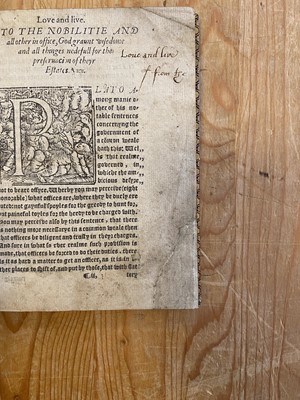 Love and live.
TO THE NOBILITIE AND
all other in office, God graunt wisedome
and all thinges nedefull for the
preseruacion of theyr
Estates.
Loue and live
PLATO A-
mong manie o-
ther of his no-
table sentences
concerning the
gouernment of
a comon weale
hath this: Wel,,
is that realme,,
gouerned, in,,
whiche the am,,
bicious desyre,,
not to beare office. Wherby you may perceiue (right
honorable) what offices are, where they be duely exe
not gaynfull spoyles for the greedy to hunt for,
but painefull toyles for the heedy to be charged with.
you may perceiue also by this sentence, that there
is nothing more necessarye in a common weale then
that officers be diligent and trusty in theyr charges.
And sure in what so euer realme such prouision is
made, that officers be forced to do their duties, there
is it as hard a matter to get an officer, as it is in
ther places to shift of, and put by those, that with flat
C.ii. tery